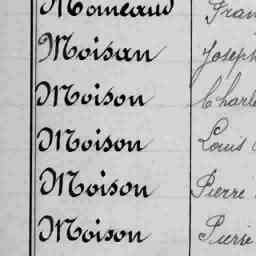 Moisan Joseph
Moison Charle
Moison Louis
Moison Pierre
Moison Pierre